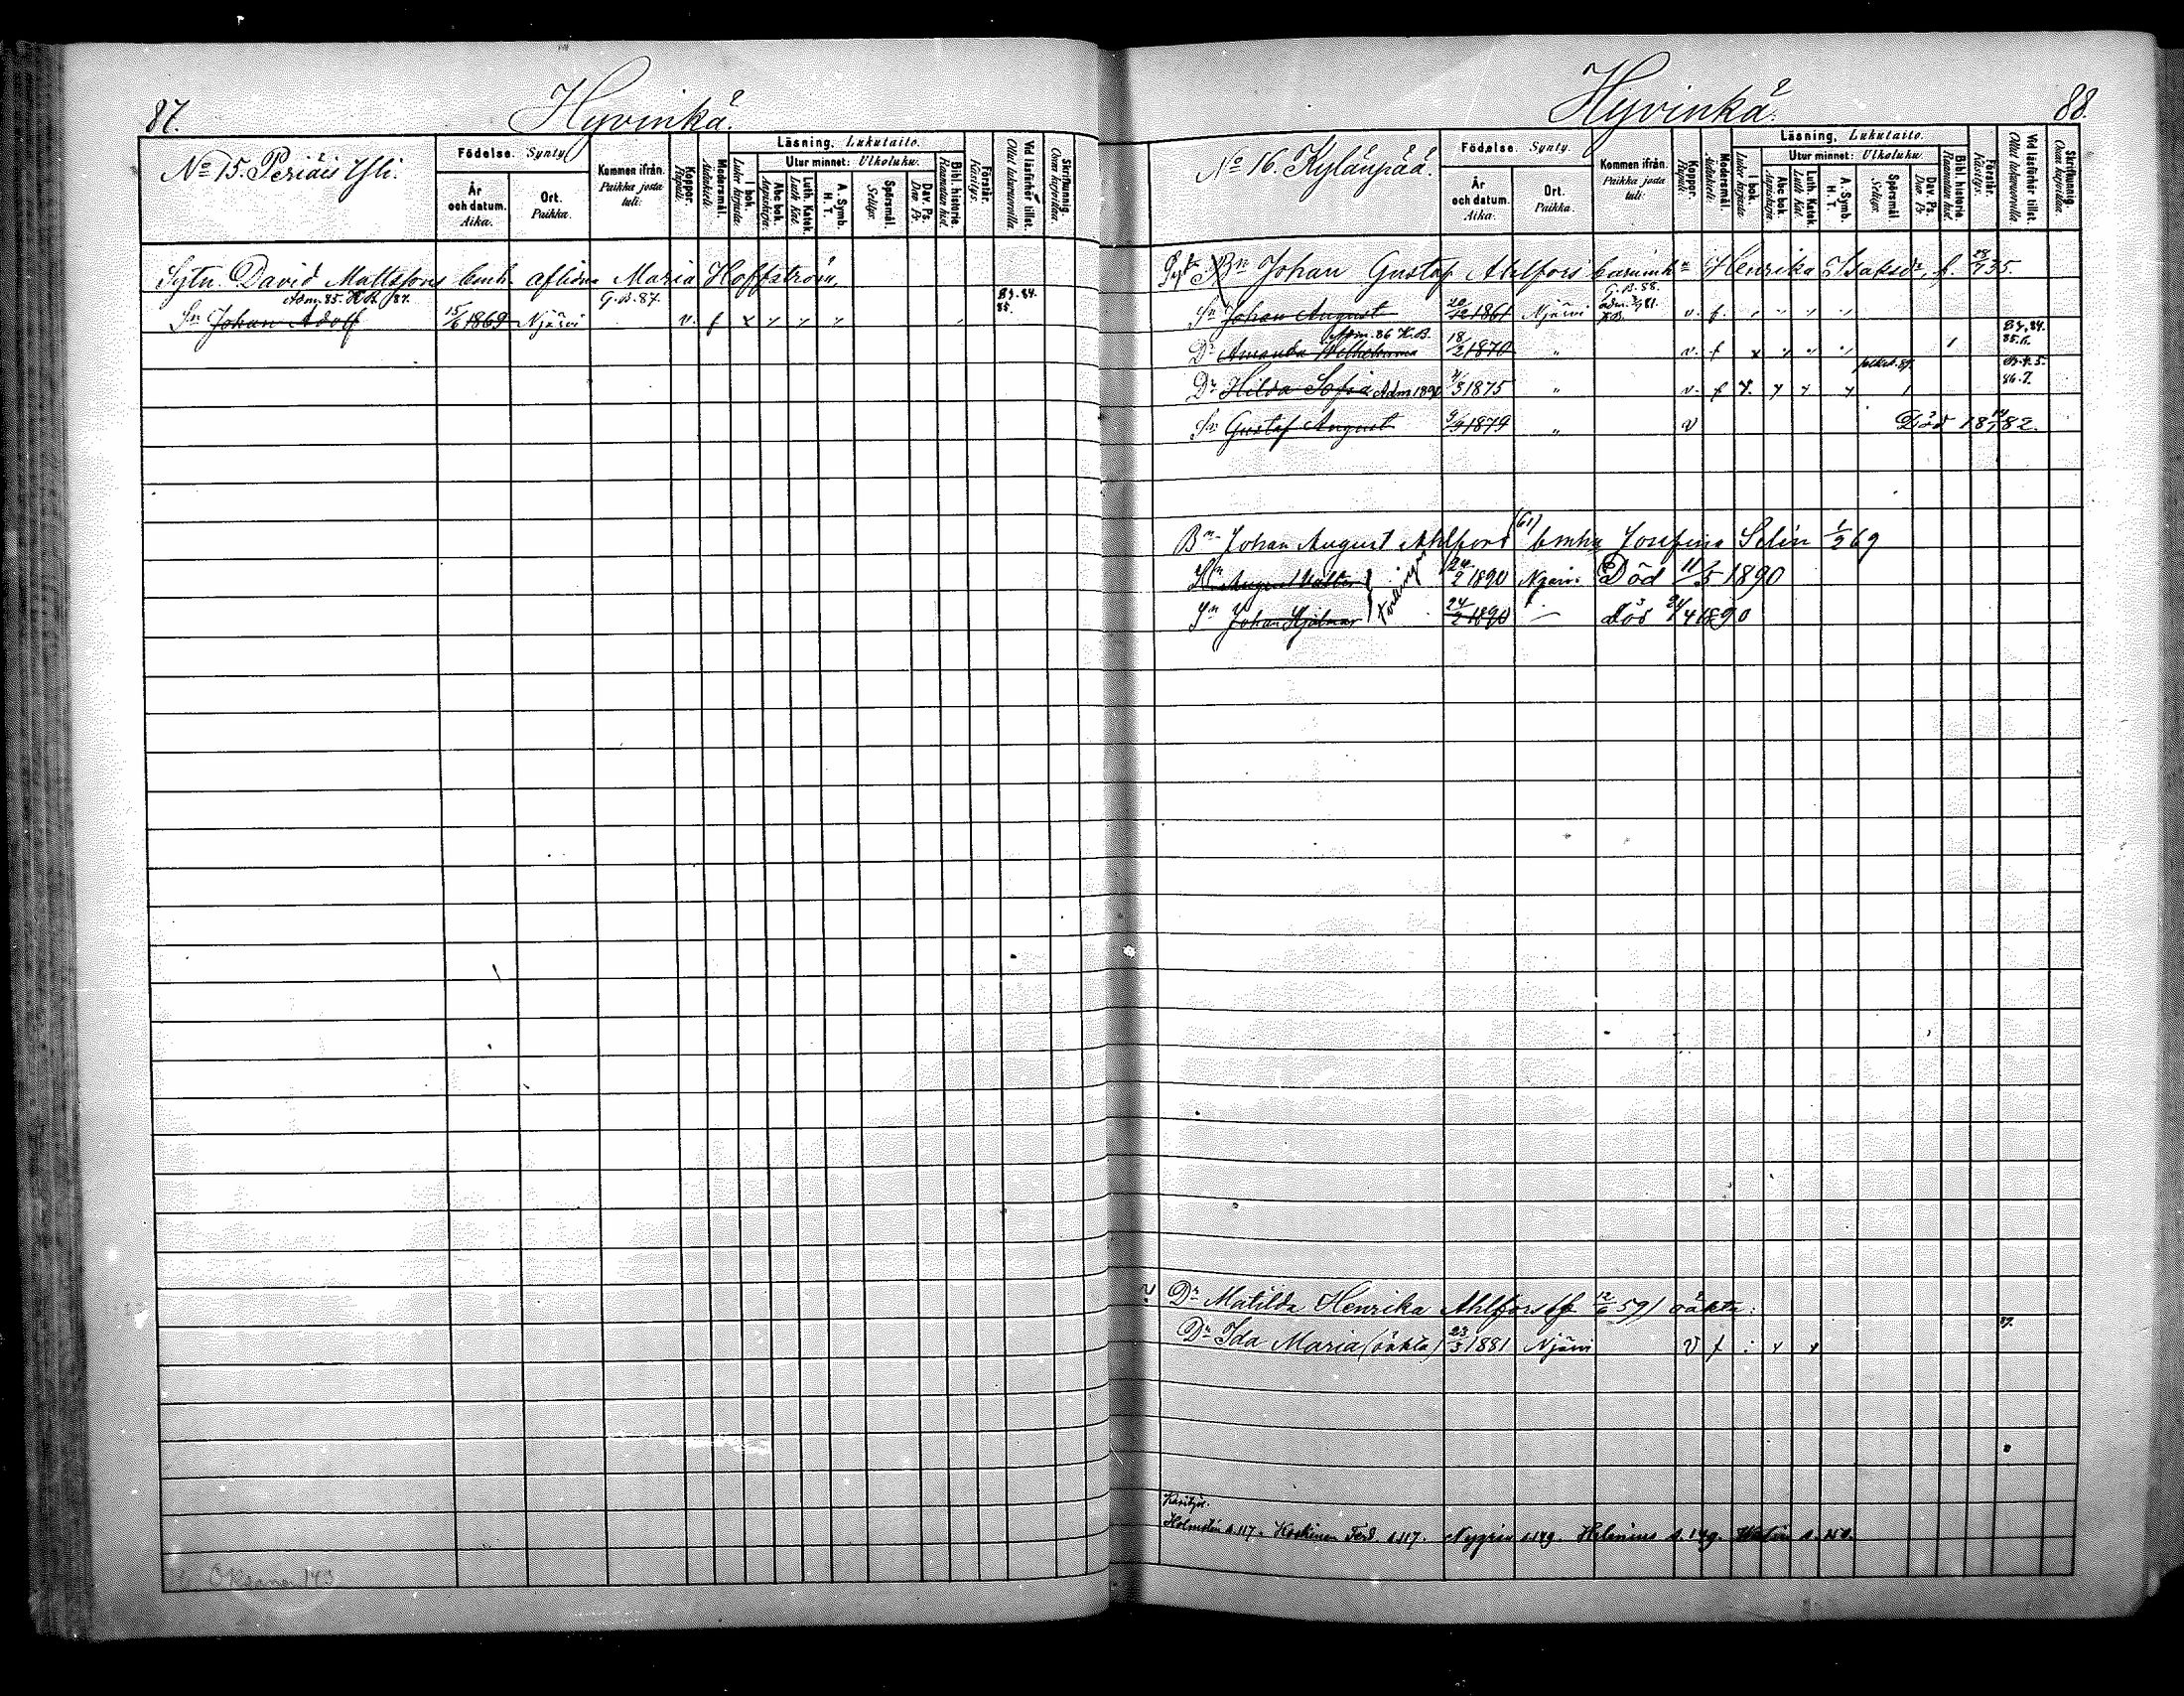 87.
Hyvinkä.
No 15. Periäis Yli.
Födelse. Synty.
År och datum. Aika.
Ort. Paikka.
Kommen ifrån. Paikka josta tuli:
Koppor. Rupuli.
Modersmål. Äidinkieli.
Läsning. Lukutaito.
I bok. Luku kirjasta.
Utur minnet: Ulkoluku.
Abc bok. Aapiskirja.
Luth. Katek. Luth. Kat.
A. Symb. H. T.
Spörsmål. Selitys.
Dav. Ps. Dav. Ps.
Bibl. historie. Raamatun hist.
Förstår. Käsitys.
Vid läsförhör tillst. Ollut lukuvuorolla.
Skrifkunnig. Osaa kirjoittaa.
Sytn. David Mattsfors bmh. aflidna Maria Hoffström.
Adm. 85. K.B. 87. G.B. 87. 83. 84.
Sn Johan Adolf 15/6 1869 Njärvi v. f x 85.
Oksanen 143
Hyvinkä.
88.
No 16. Kylänpää.
Födelse. Synty.
År och datum. Aika.
Ort. Paikka.
Kommen ifrån. Paikka josta tuli:
Koppor. Rupuli.
Modersmål. Äidinkieli.
Läsning. Lukutaito.
I bok. Luku kirjasta.
Utur minnet: Ulkoluku.
Abc bok. Aapiskirja.
Luth. Katek. Luth. Kat.
A. Symb. H. T.
Spörsmål Selitys.
Dav. Ps. Dav. Ps
Bibl. historie. Raamatun hist.
Förstår. Käsitys.
Vid läsförhör tillst. Ollut lukuvuorolla.
Skrifkunnig Osaa kirjoittaa.
Bn Johan Gustaf Ahlfors Henrika Isaksdr, f. 23/7 35.
G.B. 88.
Sn Johan August 20/12 1861 Njärvi adm. 81. K.B. v. f.
Adm. 86 K.B. 83. 84.
Dr Amanda Wilhelmina 18/2 1870 " v. f x 85. 6.
Dr Hilda Sofia Adm 1890 7/3 1875 " v. f 86. 7.
Sn Gustaf August 9/9 1879 " v Död 18 14/1 82.
Bn Johan August Ahlfors (61) bmhu Josefina Selin 1/2 69
Sn August Walter 24/2 1890 Njärvi Död 11/5 1890
Sn Johan Hjalmar 24/2 1890 Död 24/4 1890
Tvillingar
Dr Matilda Henrika Ahlfors (f 12/6 59) oäkta:
Dr Ida Maria (oäkta) 23/3 1881 Njärvi v f 87.
Holmstén s. 117. Koskinen Ferd. s. 117. Nygrén s. 149. Helenius s. 149.